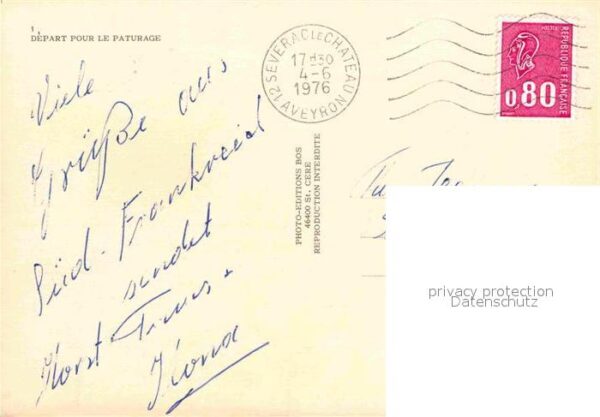 DÉPART POUR LE PATURAGE
Viele
Grüße aus
Süd-Frankreich
sendet
Horst
Ilona
12 SEVERAC LE CHATEAU
17H30
4-6
1976
AVEYRON
PHOTO-EDITIONS BOS
46400 St. CERE
REPRODUCTION INTERDITE
POSTES
REPUBLIQUE FRANÇAISE
0,80
privacy protection
Datenschutz